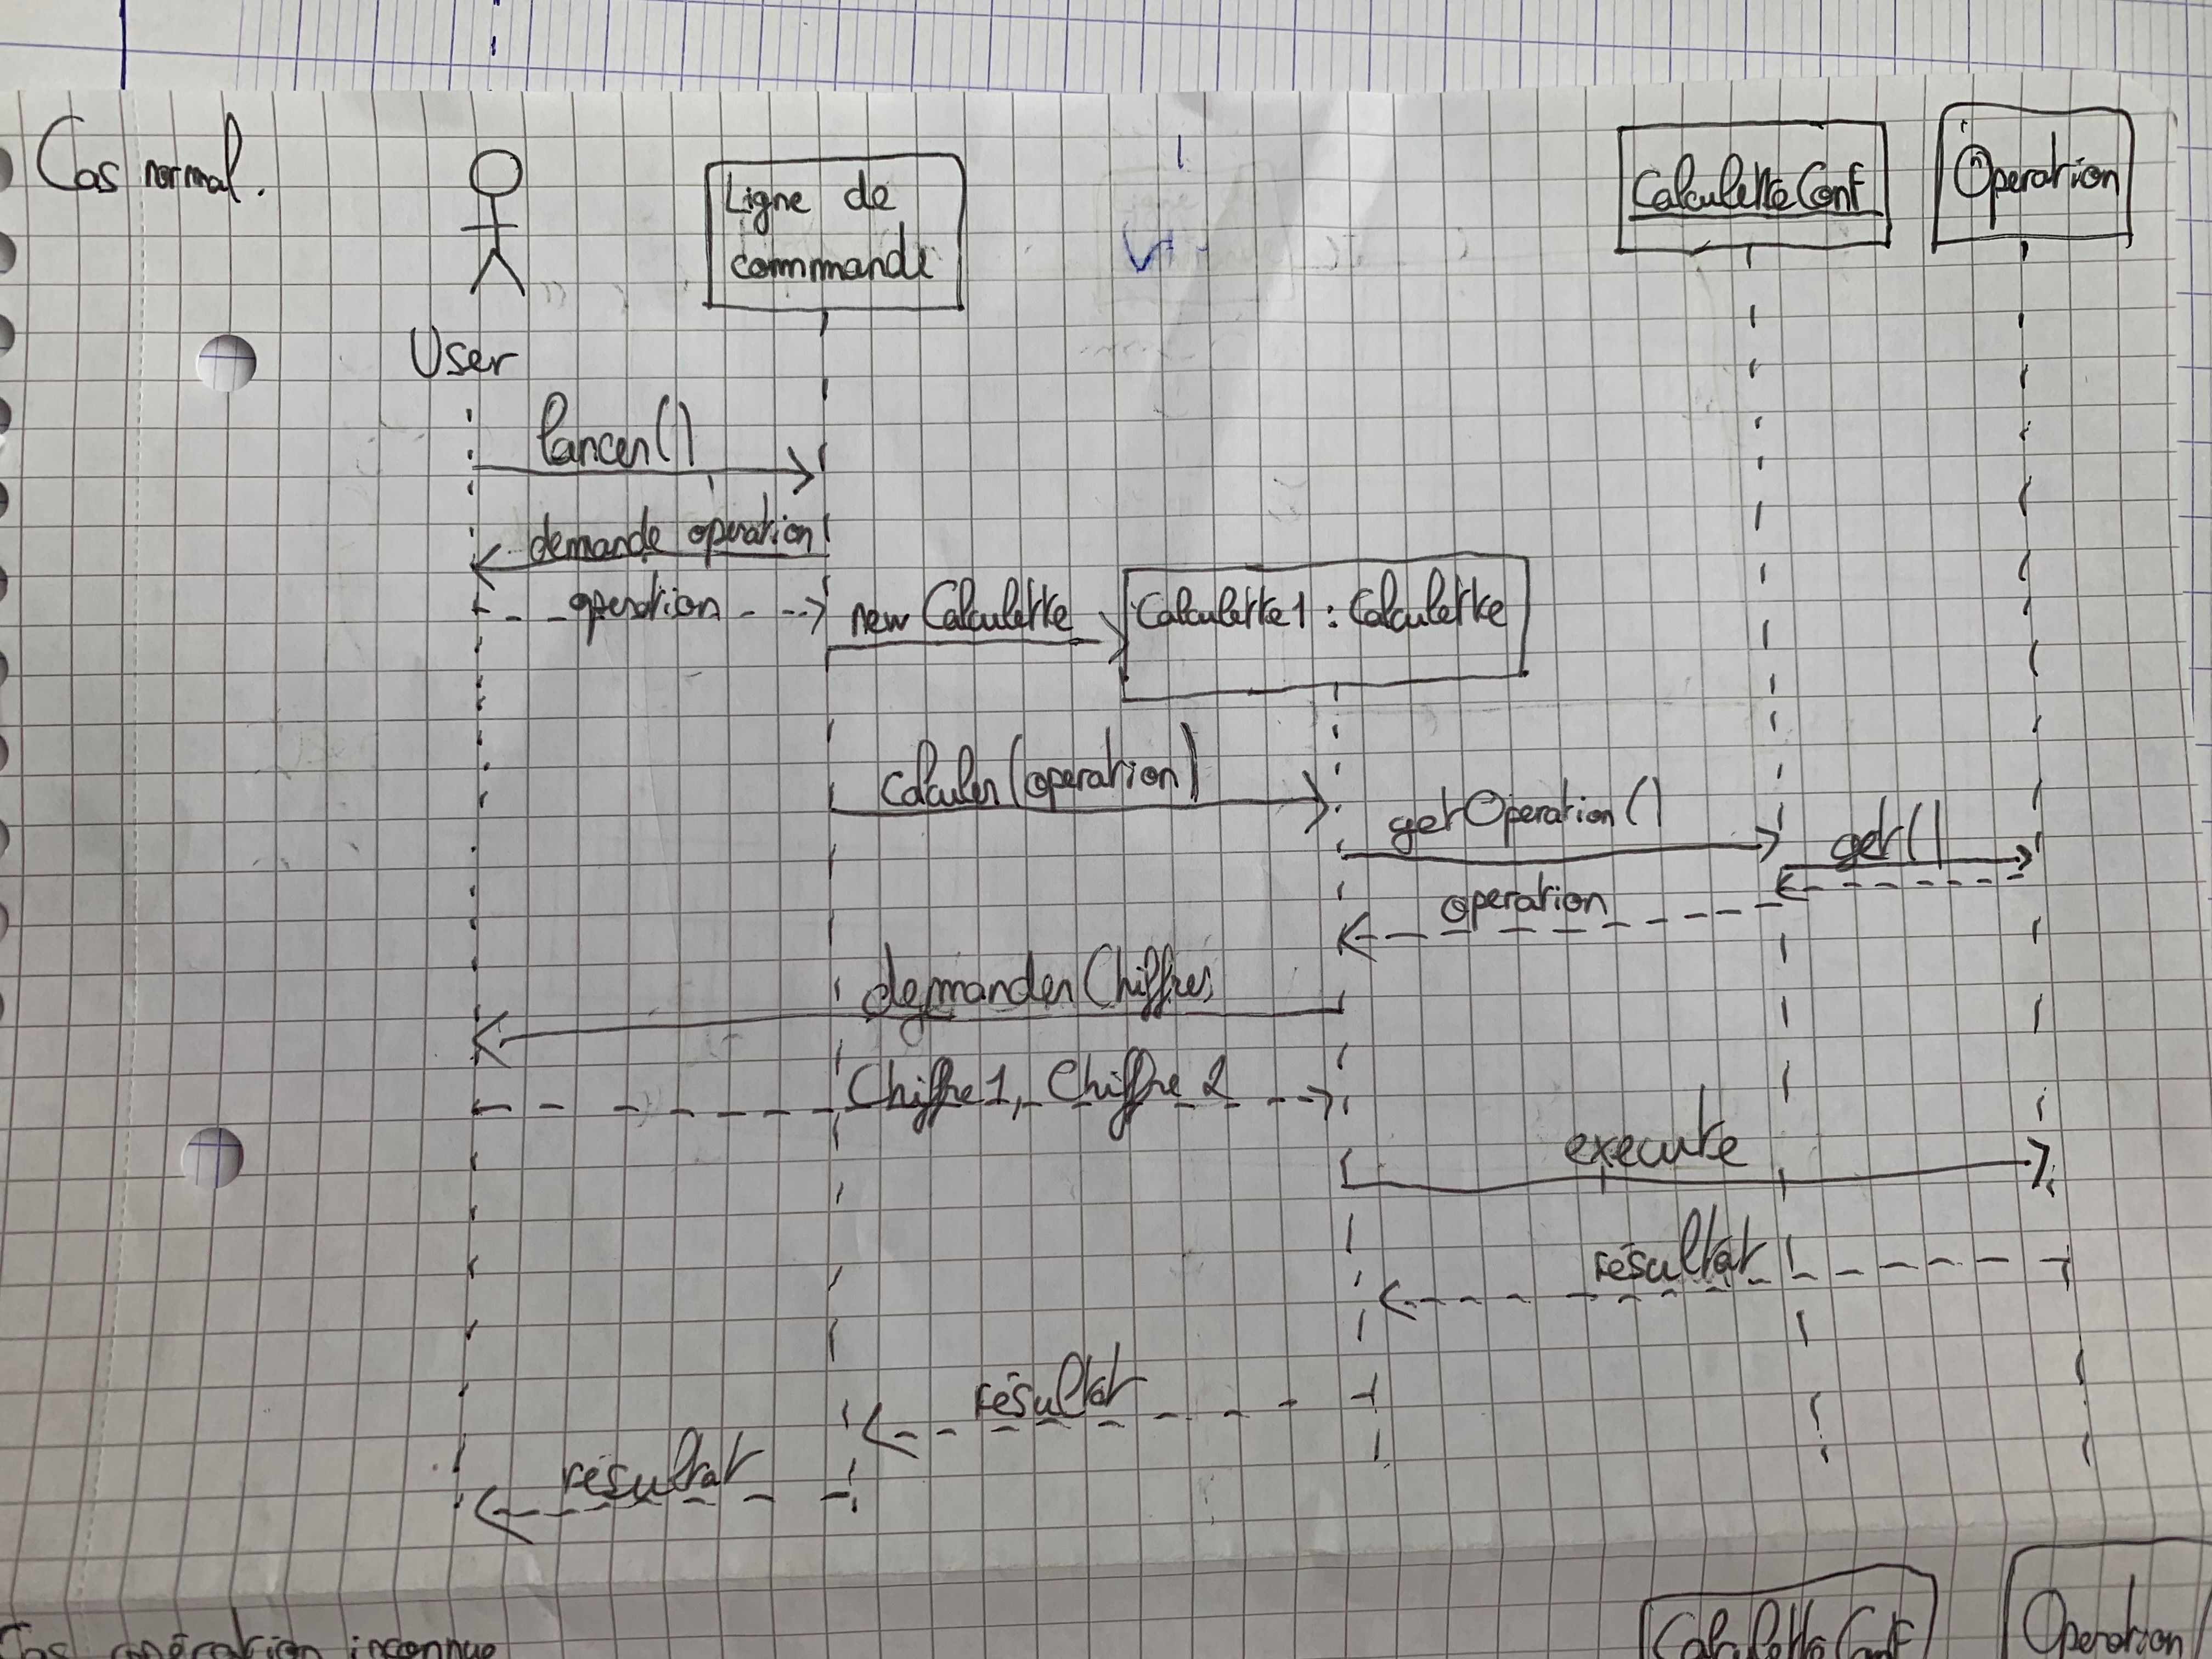 Cas normal.
User
Ligne de
commande
CalculetteConf
Operation
lancer()
demande operation
operation
new Calculette
Calculette1 : Calculette
Calculer(operation)
getOperation()
get()
operation
demander Chiffres
Chiffre1, Chiffre 2
execute
résultat
résultat
résultat
Cas opération inconnue
CalculetteConf
Operation